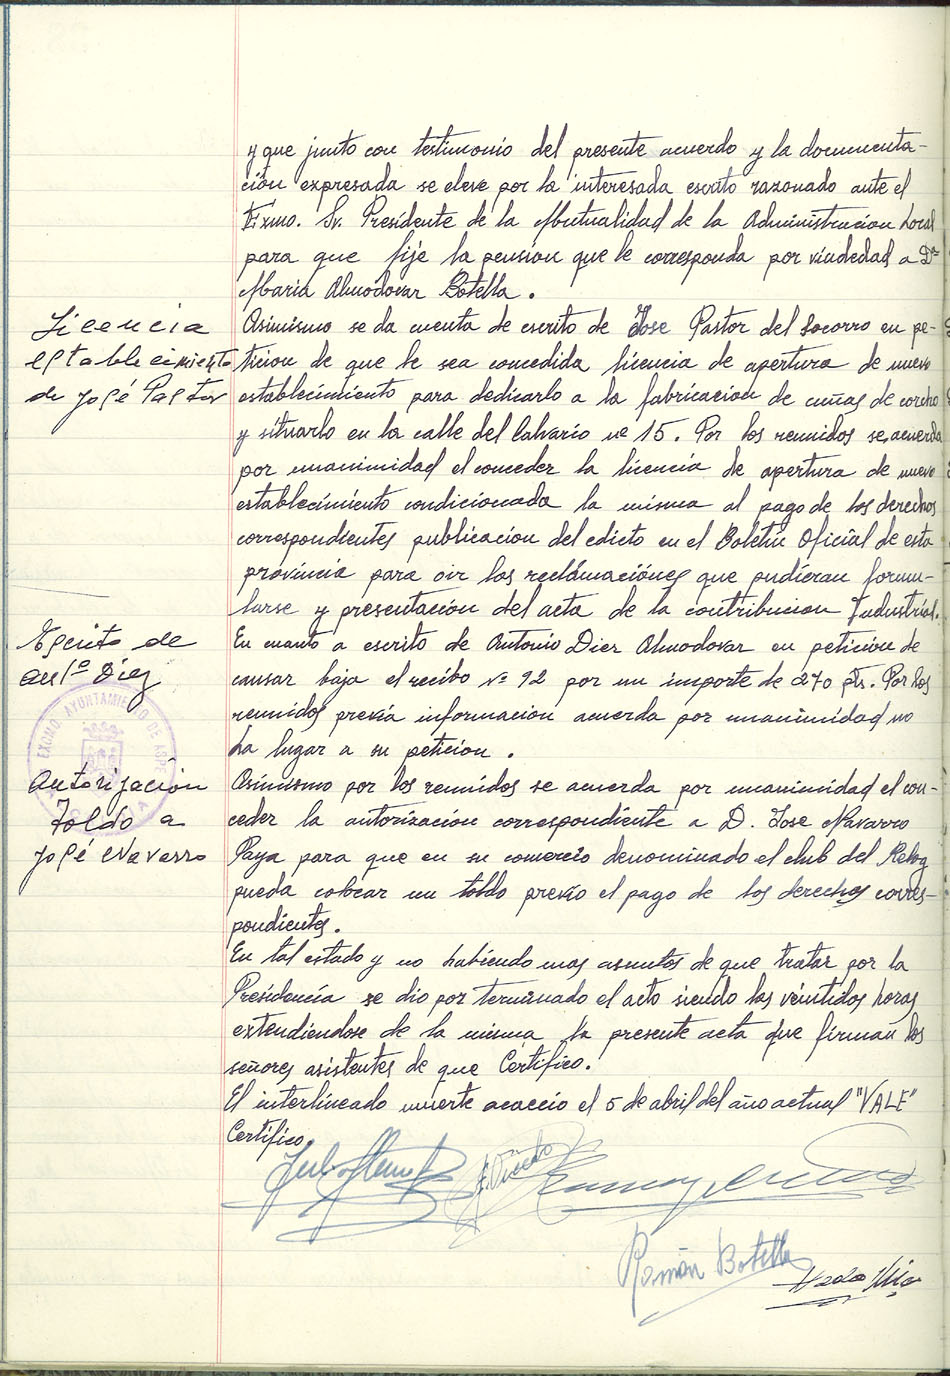 y que junto con testimonio del presente acuerdo y la documenta-
ción expresada se eleve por la interesada escrito razonado ante el
Exmo. Sr. Presidente de la Mutualidad de la Administracion Local
para que fije la pension que le corresponda por viudedad a Dª
Maria Almodovar Botella.
Licencia
establecimiento
de José Pastor
Asimismo se da cuenta de escrito de Jose Pastor del Socorro en pe-
ticion de que le sea concedida licencia de apertura de nuevo
establecimiento para dedicarlo a la fabricacion de cuñas de corcho
y situarlo en la calle del Calvario nº 15. Por los reunidos se acuerda
por unanimidad el conceder la licencia de apertura de nuevo
establecimiento condicionada la misma al pago de los derechos
correspondientes publicacion del edicto en el Boletin Oficial de esta
provincia para oir las reclamaciónes que pudieran formu-
larse y presentación del acta de la contribucion Industrial.
Escrito de
Antº Diez
En cuanto a escrito de Antonio Diez Almodovar en petición de
causar baja el recibo nº 92 por un importe de 270 pts. Por los
reunidos previa informacion acuerda por unanimidad no
ha lugar a su peticion.
EXCMO AYUNTAMIENTO DE ASPE
Autorización
Toldo a
José Navarro
Asimismo por los reunidos se acuerda por unanimidad el con-
ceder la autorización correspondiente a D. Jose Navarro
Paya para que en su comercio denominado el club del Reloj
pueda colocar un toldo previo el pago de los derechos corres-
pondientes.
En tal estado y no habiendo mas asuntos de que tratar por la
Presidencia se dio por terminado el acto siendo las veintidos horas
extendiendose de la misma la presente acta que firman los
señores asistentes de que Certifico.
El interlineado muerte acaecio el 5 de abril del año actual "VALE"
Certifico.
Román Botella